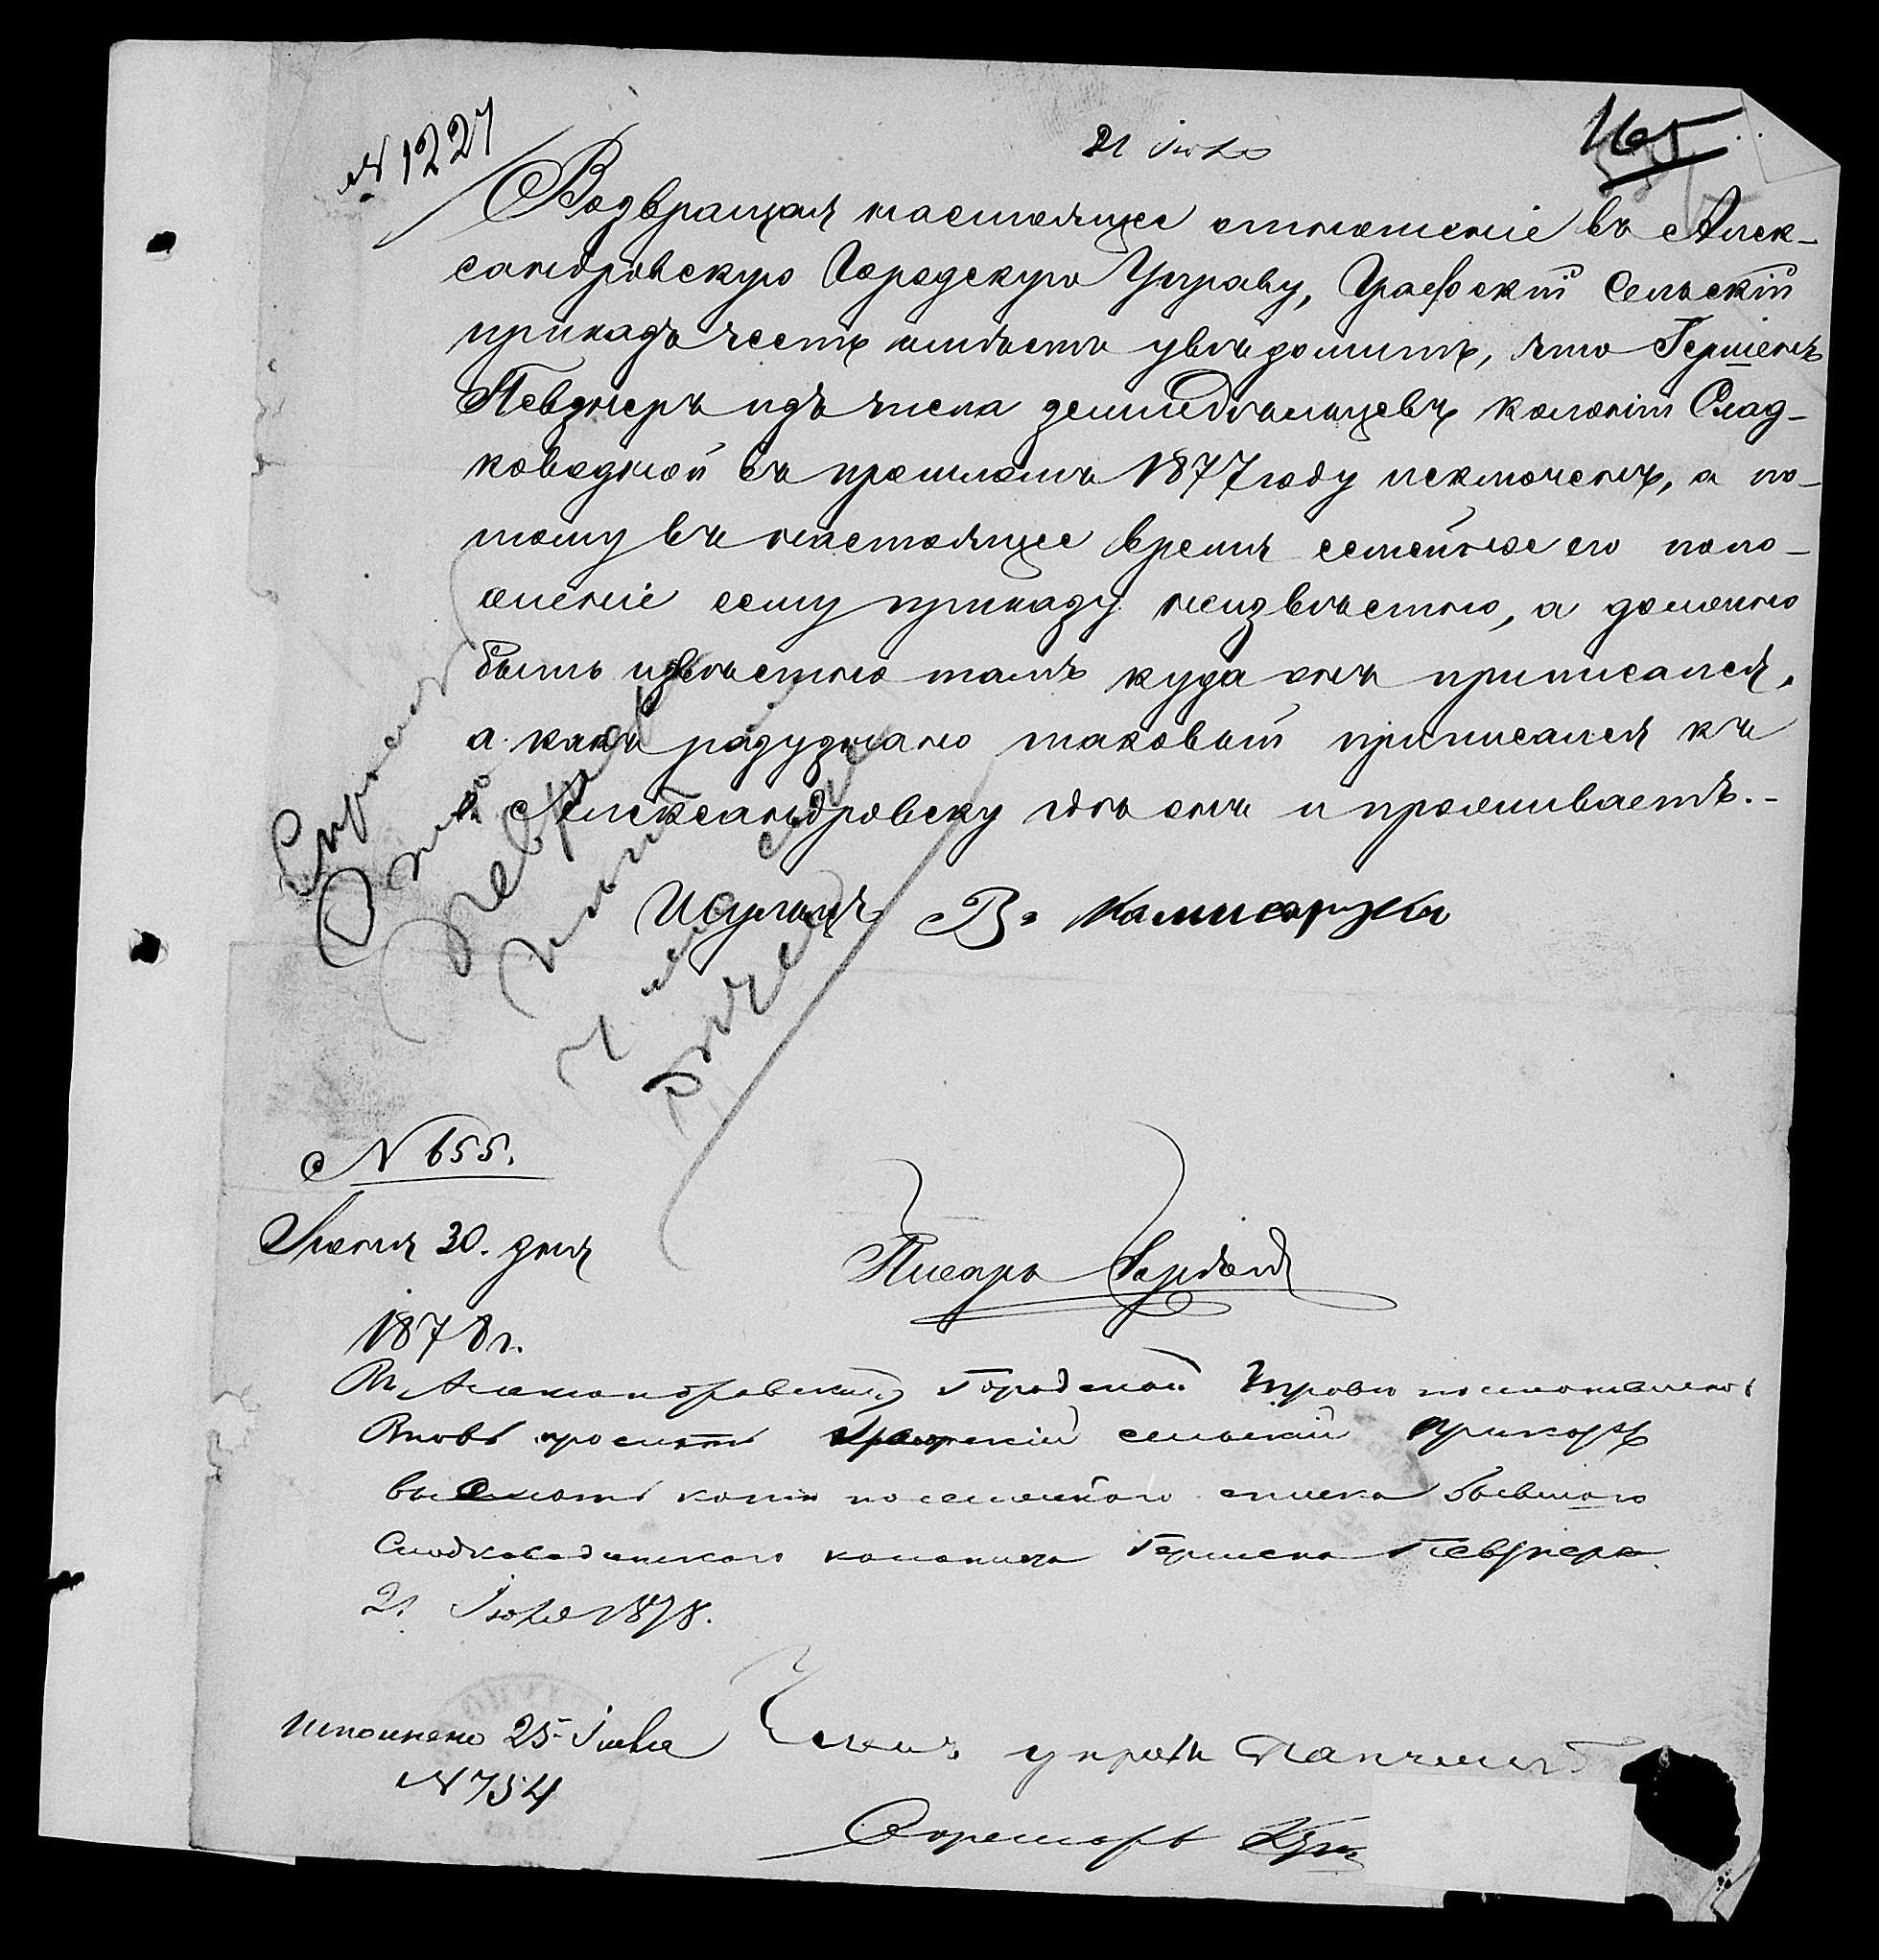 № 1227
21 Июля
165
Возвращая настоящее отношеніе въ Алек-
сандровскую Городскую Управу, Графскій Сельскій
приказъ честь имѣетъ увѣдомить, что Гершенъ
Певзнеръ изъ числа земледѣльцевъ колоніи Слад-
ководной въ прошломъ 1877 году исключенъ, а по-
тому въ настоящее время семейное его поло-
женіе сему приказу неизвѣстно, а должно
быть извѣстно тамъ куда онъ приписался,
а какъ разузнано таковый приписался къ
г. Александровску гдѣ онъ и проживаетъ.-
Шульцъ В.
№ 655.
Іюня 30. дня
1878 г.
Писарь
Въ Александровской Городской Управѣ постановлено:
Вновь просить Графскій сельскій приказъ
выслать копію посемейнаго списка бывшаго
Сладководянскаго колониста Гершена Певзнера.
21 Июля 1878.
Исполнено 25 Июля
№ 754
Членъ управы
Секретарь